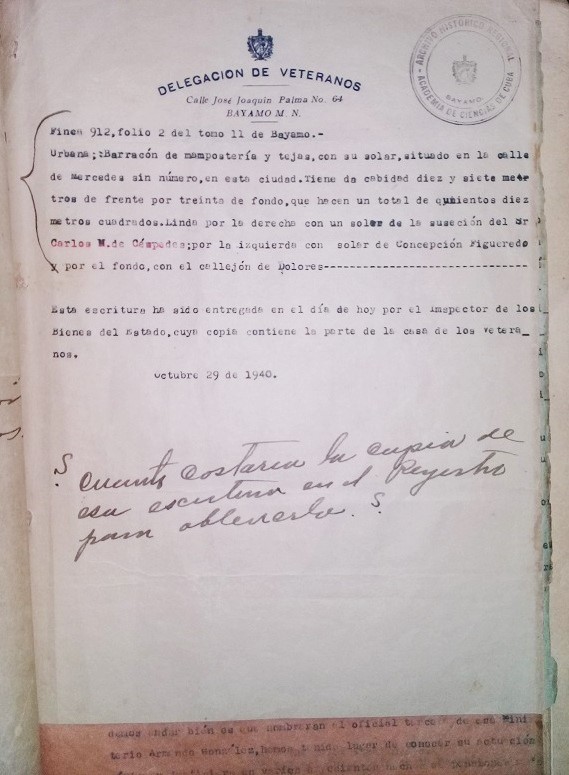 DELEGACION DE VETERANOS
Calle José Joaquín Palma No. 64
BAYAMO M. N.
ARCHIVO HISTORICO NACIONAL
ACADEMIA DE CIENCIAS DE CUBA
BAYAMO
Finca 912, folio 2 del tomo 11 de Bayamo.-
Urbana;:Barracón de mampostería y tejas, con su solar, situado en la calle
de Mercedes sin número, en esta ciudad. Tiene da cabidad diez y siete met
tros de frente por treinta de fondo, que hacen un total de quinientos diez
metros cuadrados. Linda por la derecha con un solar de la suseción del Sr
Carlos M. de Céspedes; por la izquierda con solar de Concepción Figueredo
y por el fondo, con el callejón de Dolores-------------------------------
Esta escritura ha sido entregada en el día de hoy por el Inspector de los
Bienes del Estado, cuya copia contiene la parte de la casa de los vetera_
nos.
Octubre 29 de 1940.
¿ cuanto costaria la cupia de
esa escritura en el Registro
para obtenerla. ?
tercero de ese Mini
terio Armando González, hemos tenido lugar de conocer su actuación
en varios